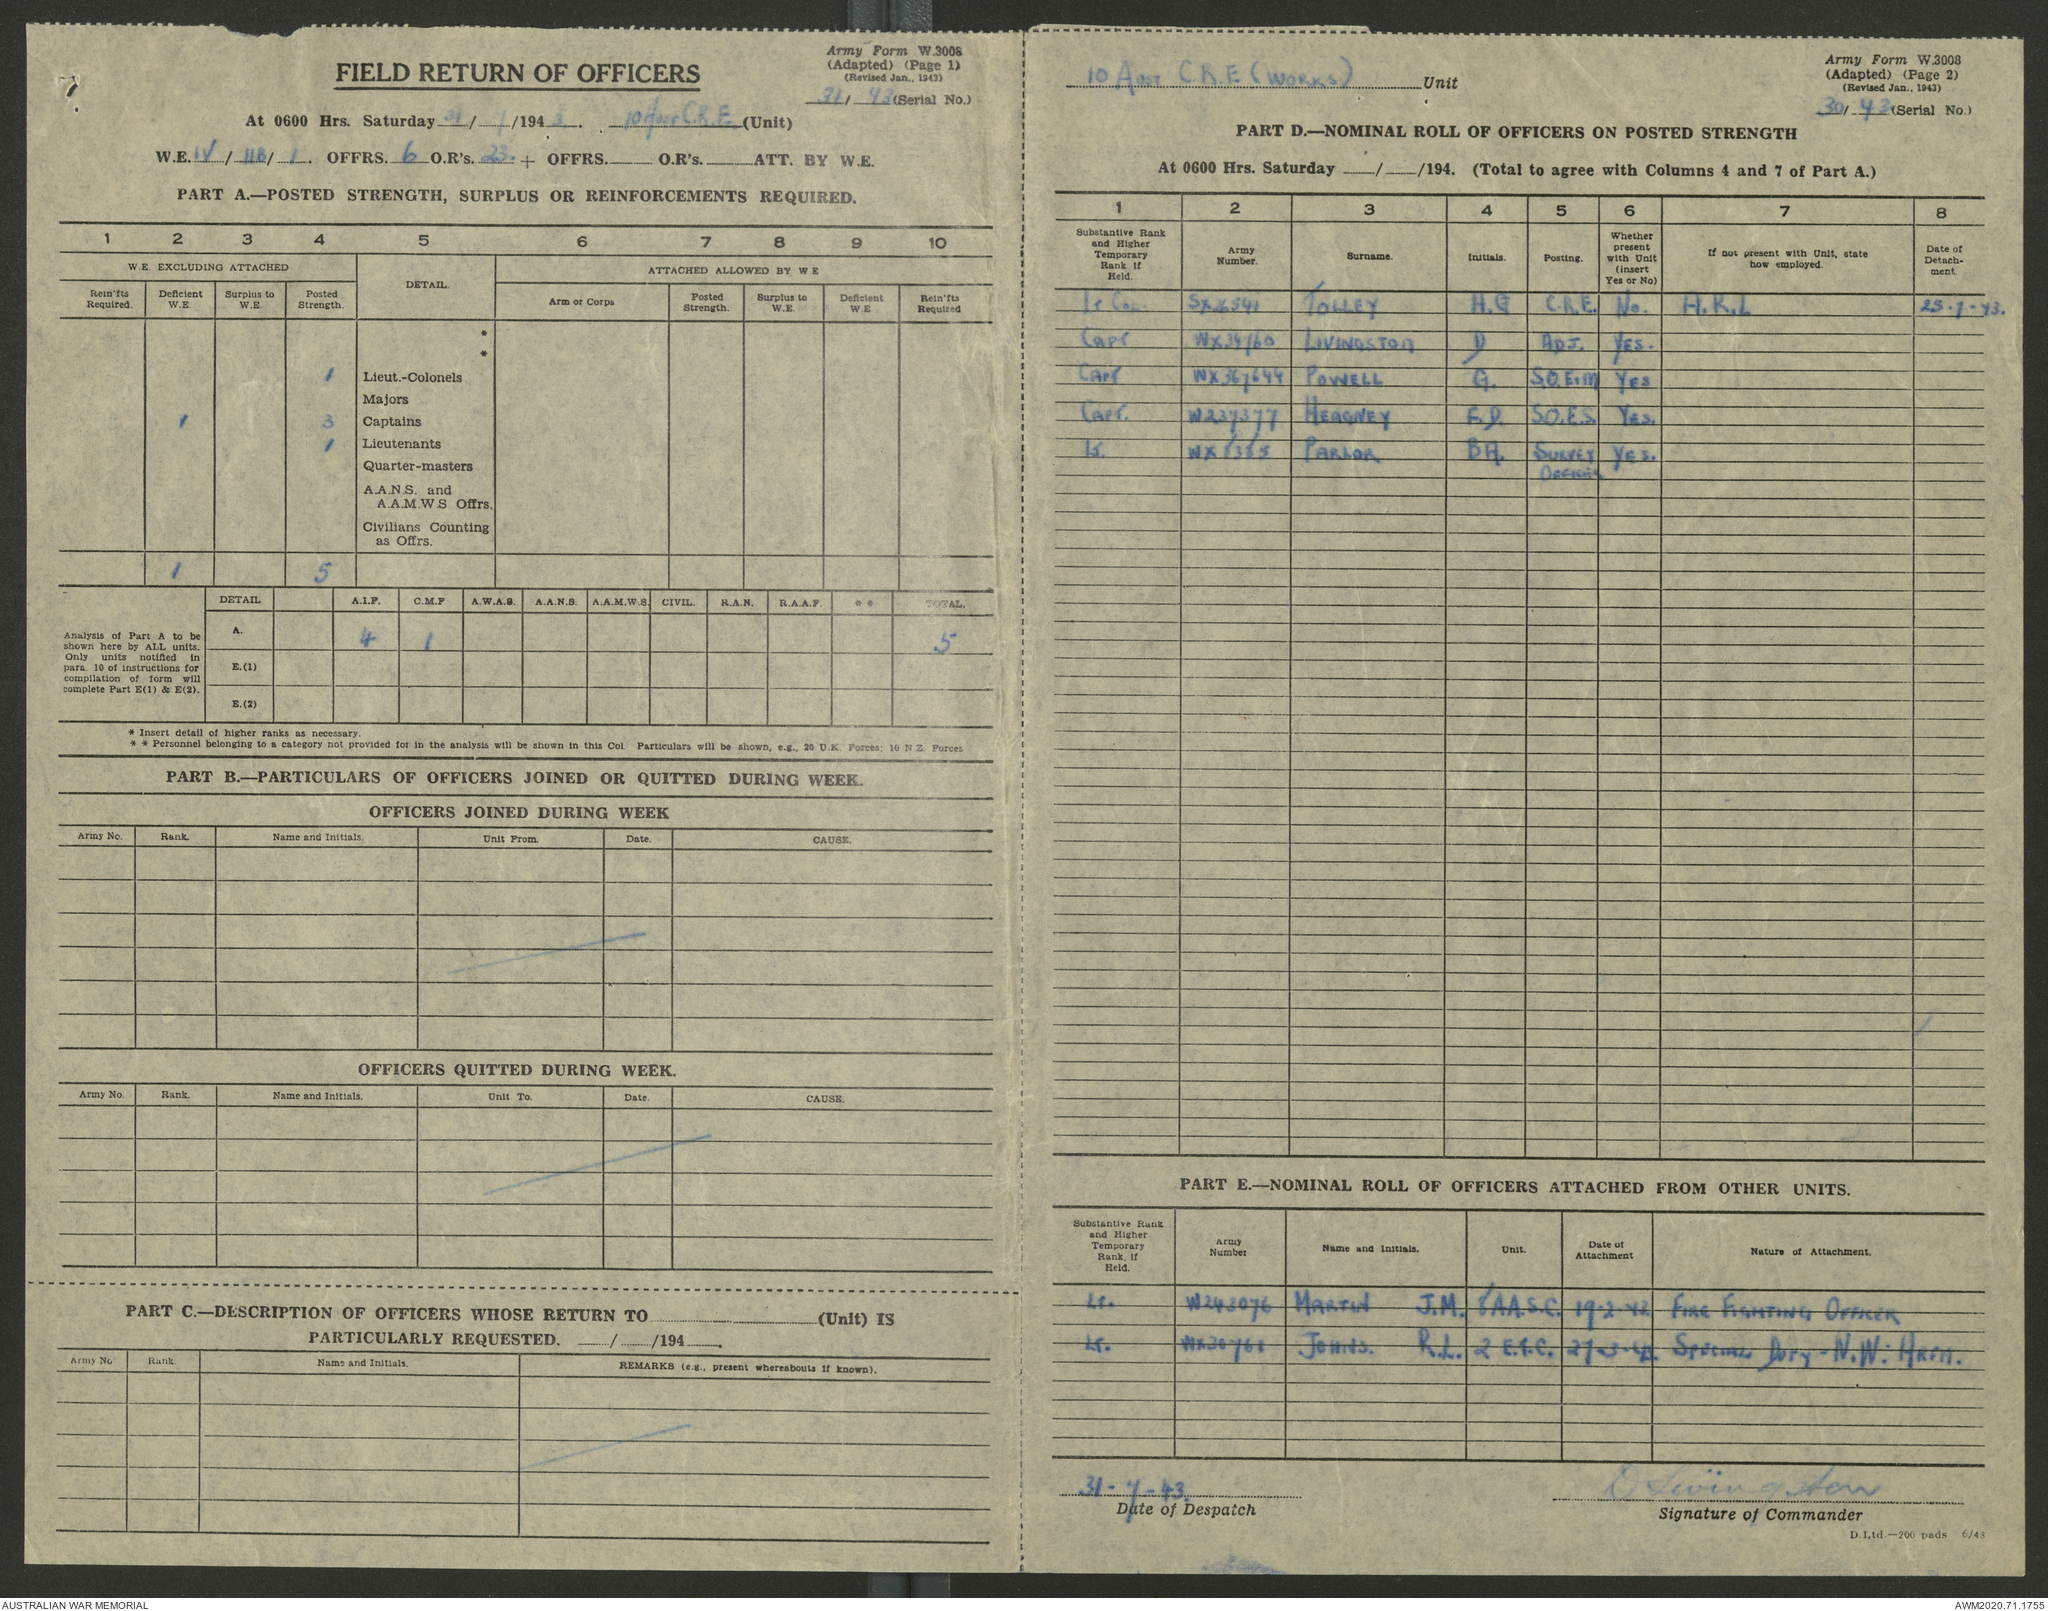 Army Form W.3008
(Adapted) (Page 1)
(Revised Jan., 1943)
FIELD RETURN OF OFFICERS
31/ 43 (Serial No.)
At 0600 Hrs. Saturday 31/ 7/194 3. 10 Aust C.R.E (Unit)
W.E. IV/ 11B/ 1. OFFRS. 6 O.R's. 23. + OFFRS. O.R's. ATT. BY W.E.
PART A.—POSTED STRENGTH, SURPLUS OR REINFORCEMENTS REQUIRED.
1 2 3 4 5 6 7 8 9 10
W.E. EXCLUDING ATTACHED DETAIL. ATTACHED ALLOWED BY W.E
Rein'fts Required. Deficient W.E. Surplus to W.E. Posted Strength. Arm or Corps Posted Strength. Surplus to W.E. Deficient W.E Rein'fts Required
*
*
1 Lieut.-Colonels
Majors
1 3 Captains
1 Lieutenants
Quarter-masters
A.A.N.S. and
A.A.M.W.S Offrs.
Civilians Counting
as Offrs.
1 5
DETAIL A.I.F. C.M.F A.W.A.S. A.A.N.S. A.A.M.W.S. CIVIL. R.A.N. R.A.A.F. * * TOTAL.
Analysis of Part A to be
shown here by ALL units.
Only units notified in
para. 10 of instructions for
compilation of form will
complete Part E(1) & E(2).
A. 4 1 5
E.(1)
E.(2)
* Insert detail of higher ranks as necessary.
* * Personnel belonging to a category not provided for in the analysis will be shown in this Col. Particulars will be shown, e.g., 20 U.K. Forces; 10 N.Z. Forces
PART B.—PARTICULARS OF OFFICERS JOINED OR QUITTED DURING WEEK.
OFFICERS JOINED DURING WEEK
Army No. Rank. Name and Initials. Unit From. Date. CAUSE.
OFFICERS QUITTED DURING WEEK.
Army No. Rank. Name and Initials. Unit To. Date. CAUSE.
PART C.—DESCRIPTION OF OFFICERS WHOSE RETURN TO (Unit) IS
PARTICULARLY REQUESTED. / /194 .
Army No Rank. Name and Initials. REMARKS (e.g., present whereabouts if known).
10 Aust C.R.E (WORKS) Unit
Army Form W.3008
(Adapted) (Page 2)
(Revised Jan., 1943)
30/ 43 (Serial No.)
PART D.—NOMINAL ROLL OF OFFICERS ON POSTED STRENGTH
At 0600 Hrs. Saturday / /194. (Total to agree with Columns 4 and 7 of Part A.)
1 2 3 4 5 6 7 8
Substantive Rank and Higher Temporary Rank if Held. Army Number. Surname. Initials. Posting. Whether present with Unit (insert Yes or No) If not present with Unit, state how employed. Date of Detach- ment.
Lt Col. SX26541 TOLLEY H.G C.R.E. No. A.R.L 25-7-43.
Capt WX34760 LIVINGSTON D ADJ. YES.
Capt WX367644 POWELL G. S.O.E.&M YES
Capt. W237377 HEAGNEY F.D. S.O.E.S. YES.
Lt. PARLOR B.A. SURVEY YES.
OFFICER
PART E.—NOMINAL ROLL OF OFFICERS ATTACHED FROM OTHER UNITS.
Substantive Rank and Higher Temporary Rank, if Held. Army Number Name and Initials. Unit. Date of Attachment Nature of Attachment.
Lt. W243076 MARTIN J.M. A.A.S.C. 19-2-42 FIRE FIGHTING OFFICER
Lt. JOHNS. R.L. 2 SPECIAL DUTY - N.W.
31-7-43.
Date of Despatch
D Livingston
Signature of Commander
D.Ltd.—200 pads 6/43
AUSTRALIAN WAR MEMORIAL
AWM2020.71.1755